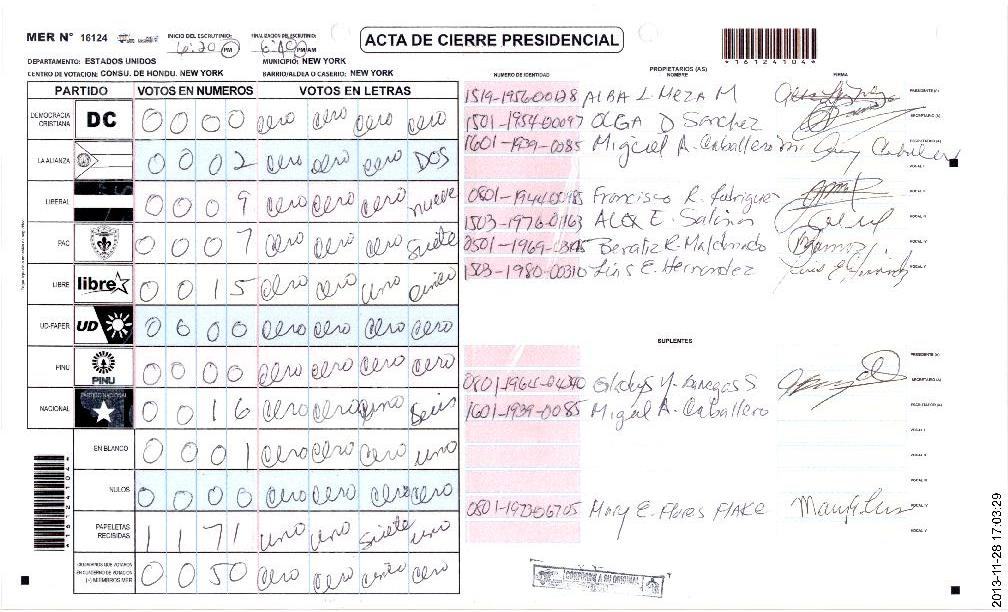 MER Nº 16124
INICIO DEL ESCRUTINIO: 6:20 PM
FINALIZACION DEL ESCRUTINIO: PM/AM
ACTA DE CIERRE PRESIDENCIAL
*16124104*
DEPARTAMENTO: ESTADOS UNIDOS
MUNICIPIO: NEW YORK
CENTRO DE VOTACION: CONSU. DE HONDU. NEW YORK
BARRIO/ALDEA O CASERIO: NEW YORK
PARTIDO VOTOS EN NUMEROS VOTOS EN LETRAS
DEMOCRACIA CRISTIANA DC 0 0 0 0 cero cero cero cero
LA ALIANZA 0 0 0 2 cero cero cero DOS
LIBERAL 0 0 0 9 cero cero cero nueve
PAC 0 0 0 7 cero cero cero Siete
LIBRE libre 0 0 1 5 cero cero uno cinco
UD-FAPER UD 0 0 0 0 cero cero cero cero
PINU PINU 0 0 0 0 cero cero cero cero
NACIONAL PARTIDO NACIONAL 0 0 1 6 cero cero uno Seis
EN BLANCO 0 0 0 1 cero cero cero uno
NULOS 0 0 0 0 cero cero cero cero
PAPELETAS RECIBIDAS 1 1 7 1 uno uno Siete uno
CIUDADANOS QUE VOTARON EN CUADERNO DE VOTACION (+) MIEMBROS MER 0 0 5 0 cero cero cero
*16124104*
NUMERO DE IDENTIDAD
PROPIETARIOS (AS)
NOMBRE
FIRMA
1519-1956-00128 ALBA L. MEZA M PRESIDENTE (A)
1501-1954-00097 OLGA D Sanchez SECRETARIO (A)
1601-1939-0085 Miguel A. Caballero m. ESCRUTADOR (A)
VOCAL I
0801-1944-00485 Francisco R. Rodriguez
1503-1976-01163 ALEX E. Salinas
0501-1969- Beratiz R. Maldonado VOCAL IV
1503-1980-00310 Luis E. Hernandez VOCAL V
SUPLENTES
PRESIDENTE (A)
Gladys Y. Banegas S SECRETARIO (A)
1601-1939-0085 Migal A. Caballero ESCRUTADOR (A)
VOCAL I
VOCAL II
VOCAL III
0801-1973-06705 Mary E. Flores FLAKE VOCAL IV
VOCAL V
CONFORME A SU ORIGINAL
2013-11-28 17:03:29